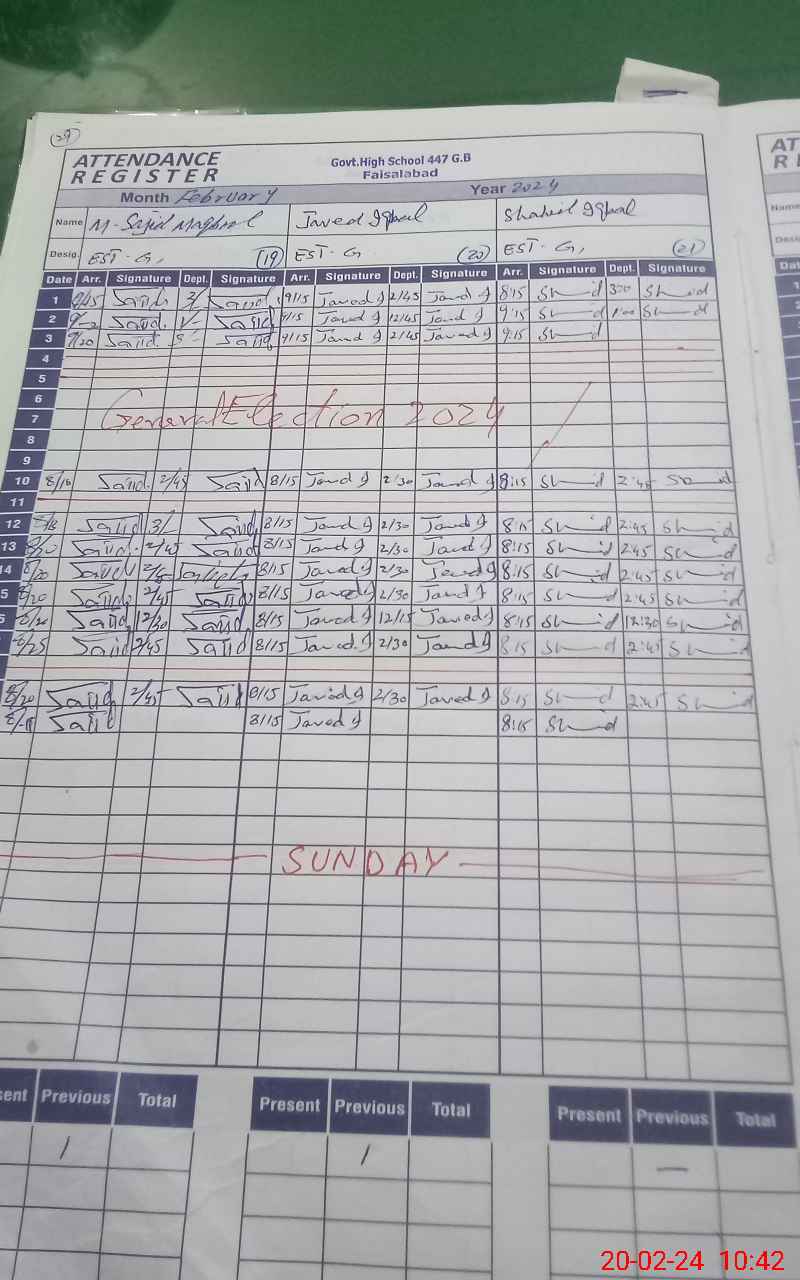 29
ATTENDANCE REGISTER
Govt.High School 447 G.B
Faisalabad
Month February Year 2024
Name M-Sajid Maqbool Javed Iqbal Shahid Iqbal
Desig. EST-G, (19) EST-G (20) EST-G, (21)
Date Arr. Signature Dept. Signature Arr. Signature Dept. Signature Arr. Signature Dept. Signature
1 Sajid Sajid 9/15 Javed I 2/45 Javed I 8:15 Shahid Shahid
2 Sajid Sajid 9/15 Javed I 12/45 Javed I 9:15 Shahid Shahid
3 Sajid Sajid 9/15 Javed I 2/45 Javed I 9:15 Shahid
4
5
6
7 General Election 2024
8
9
10 Sajid 2/45 Sajid 8/15 Javed I 2/30 Javed I 8:15 Shahid 2:45 Shahid
11
12 Sajid Sajid 8/15 Javed I 2/30 Javed I 8:15 Shahid 2:45 Shahid
13 Sajid 2/45 Sajid 8/15 Javed I 2/30 Javed I 8:15 Shahid 2:45 Shahid
14 8/20 Sajid 8/15 Javed I 2/30 Javed I 8:15 Shahid 2:45 Shahid
5 8/20 Sajid 2/45 Sajid 8/15 Javed I 2/30 Javed I 8:15 Shahid 2:45 Shahid
8/20 Sajid 12/30 Sajid 8/15 Javed I 12/15 Javed I 8:15 Shahid 12:30 Shahid
8/25 Sajid 2/45 Sajid 8/15 Javed I 2/30 Javed I 8:15 Shahid 2:45 Shahid
8/20 Sajid 2/45 Sajid 8/15 Javed I 2/30 Javed I 8:15 Shahid 2:45 Shahid
Sajid 8/15 Javed I 8:15 Shahid
SUNDAY
sent Previous Total Present Previous Total Present Previous Total
1 1 —
20-02-24 10:42